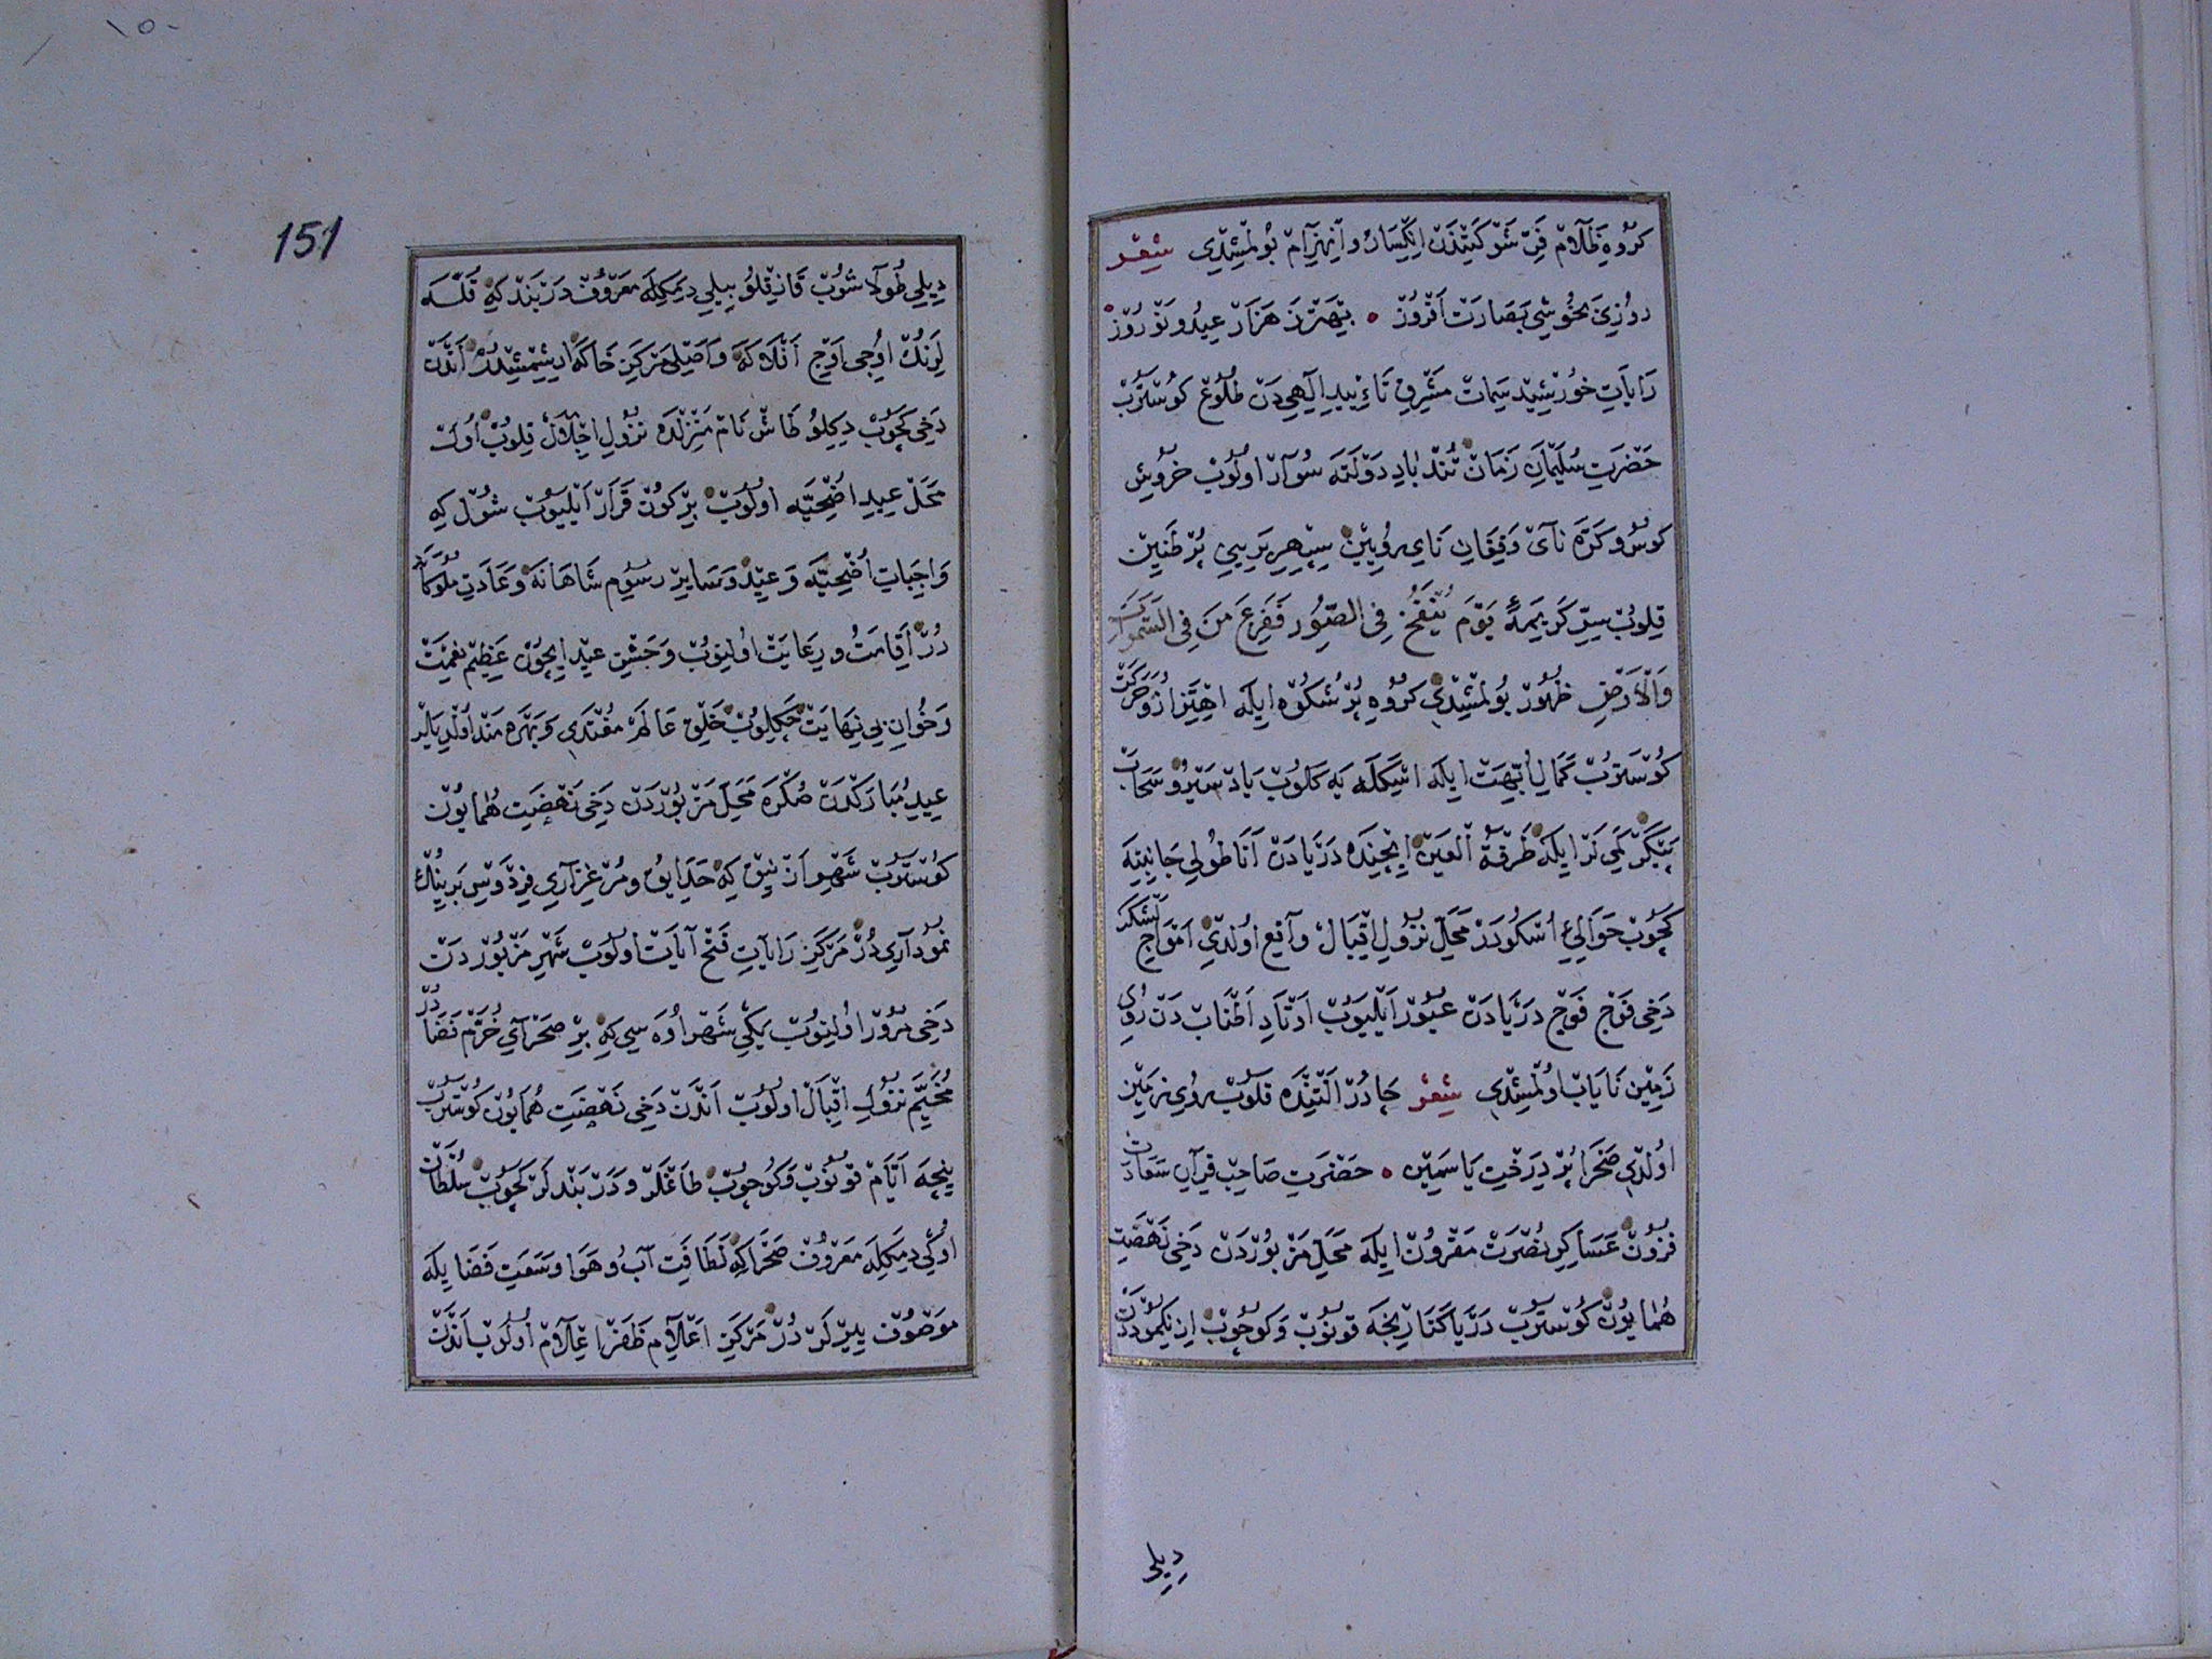 كروه ظلام فر شوكتندن انكسار و انهزام بولمشدي شعر
روزی بخوشی بصارت افروز • بهتر ز هزار عید و نوروز
رایات خورشید سمات مشرق تأیید الهی دن طلوع كوستروب
حضرت سلیمان زمان تند باد دولته سوار اولوب خروش
كوس و كره نای و فغان نای رویین سپهر بریی پر طنین
قلوب سر كریمهٔ یوم ینفخ فی الصور ففزع من فی السموات
والارض ظهور بولمشدی كروه پر شكوه ایله اهتزاز و حركت
كوستروب كمال ابهت ایله اسكله یه كلوب باد سیر و سحاب
پیكر كمی لر ایله طرفة العین ایچنده دریادن اناطولی جانبنه
كچوب حوالی اسكودر محل نزول اقبال واقع اولدی امواج لشكر
دخی فوج فوج دریادن عبور ایلیوب اوتاد اطناب دن روی
زمین نایاب اولمشدی شعر چادر التنده قلوب روی زمین
اولدی صحرا پر درخت یاسمین • حضرت صاحب قران سعادت
فزون عساكر نصرت مقرون ایله محل مزبوردن دخی نهضت
همایون كوستروب دریا كنارنجه قونوب و كوچوب ازنكموددن
دیلی
151
١٥٠
دیلی طولاشوب قازقلو بیلی دیمكله معروف دربند كه قله
لرنك اوجی اوج افلاكه و اصلی مركز خاكه ایشمشیدی اندن
دخی كچوب دیكیلو طاش نام منزلده نزول اجلال قلوب اول
محل عید اضحیه اولوب بر كون قرار ایلیوب شول كه
واجبات اضحیه و عید و سایر رسوم شاهانه و عادت ملوكانه
در اقامت و رعایت اولنوب و جشن عید ایچون عظیم نعمت
و خوان بی نهایت چكیلوب خلق عالم مغتدی و بهره مند اولدیلر
عید مباركدن صكره محل مزبوردن دخی نهضت همایون
كوستروب شهر ازنیق كه حدایق و مرغزاری فردوس برینك
نموداری در مركز رایات فتح آیات اولوب شهر مزبوردن
دخی مرور اولنوب یكی شهر اوه سی كه بر صحرای خرم فضادر
مخیم نزول اقبال اولوب اندن دخی نهضت همایون كوستروب
نیچه ایام قونوب و كوچوب طاغلر و دربندلر كچوب سلطان
اوكی دیمكله معروف صحرا كه لطافت آب و هوا و سعت فضا یله
موصوف یرلر در مركز اعلام ظفر اعلام اولوب اندن